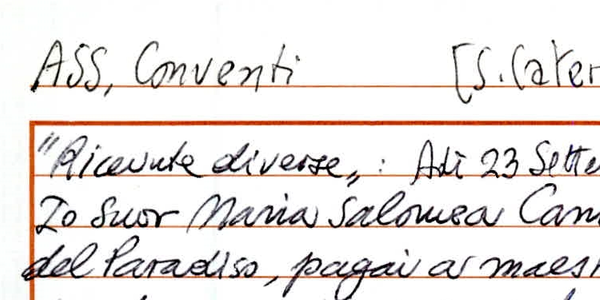 ASS, Conventi [S. Cater
"Ricevute diverse„: Adì 23 Sette
Io Suor Maria Salomea Cam
del Paradiso, pagai a maest